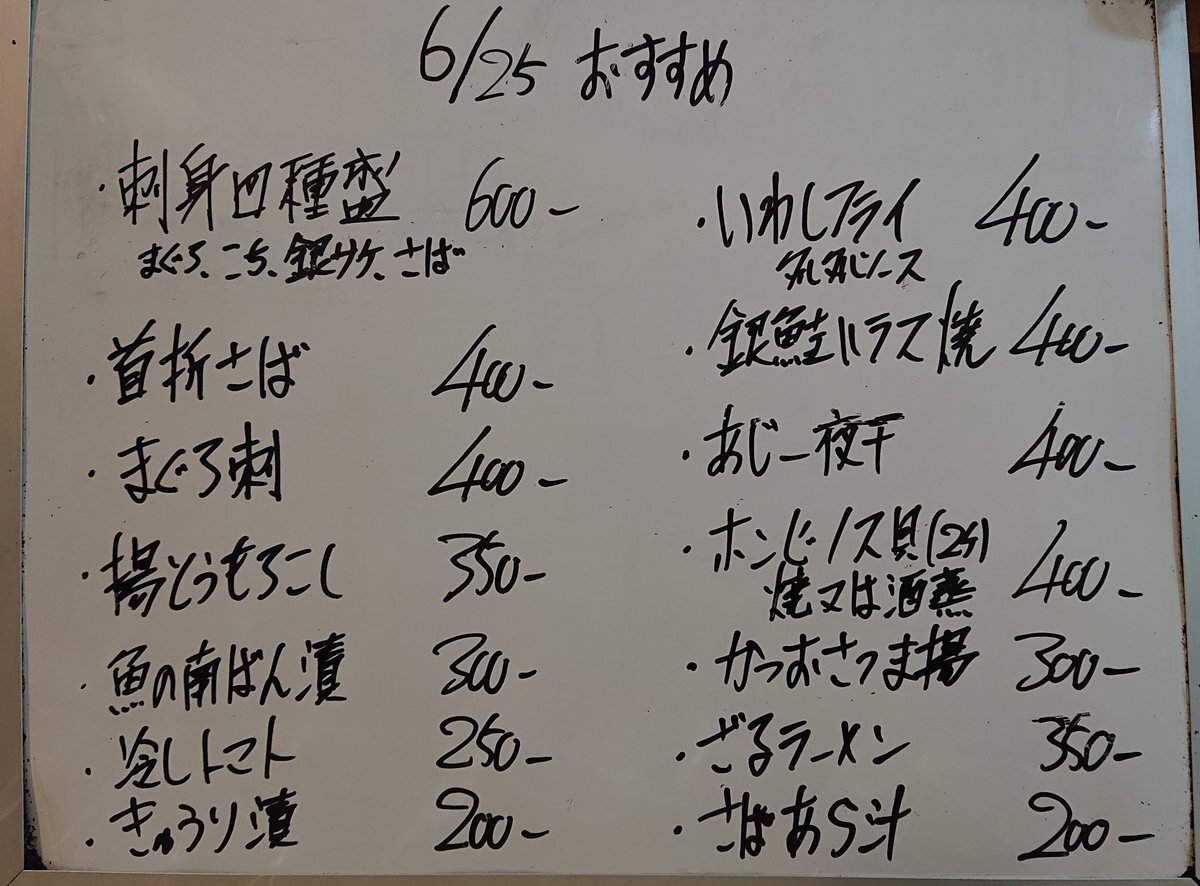 6/25 おすすめ
・刺身四種盛 600-
まぐろ、こち、銀サケ、さば
・首折さば 400-
・まぐろ刺 400-
・揚とうもろこし 350-
・魚の南ばん漬 300-
・冷しトマト 250-
・きゅうり漬 200-
・いわしフライ 400-
ソース
・銀鮭ハラス焼 400-
・あじ一夜干 400-
・ホンビノス貝(2ケ)
焼又は酒蒸 400-
・かつおさつま揚 300-
・ざるラーメン 350-
・さばあら汁 200-